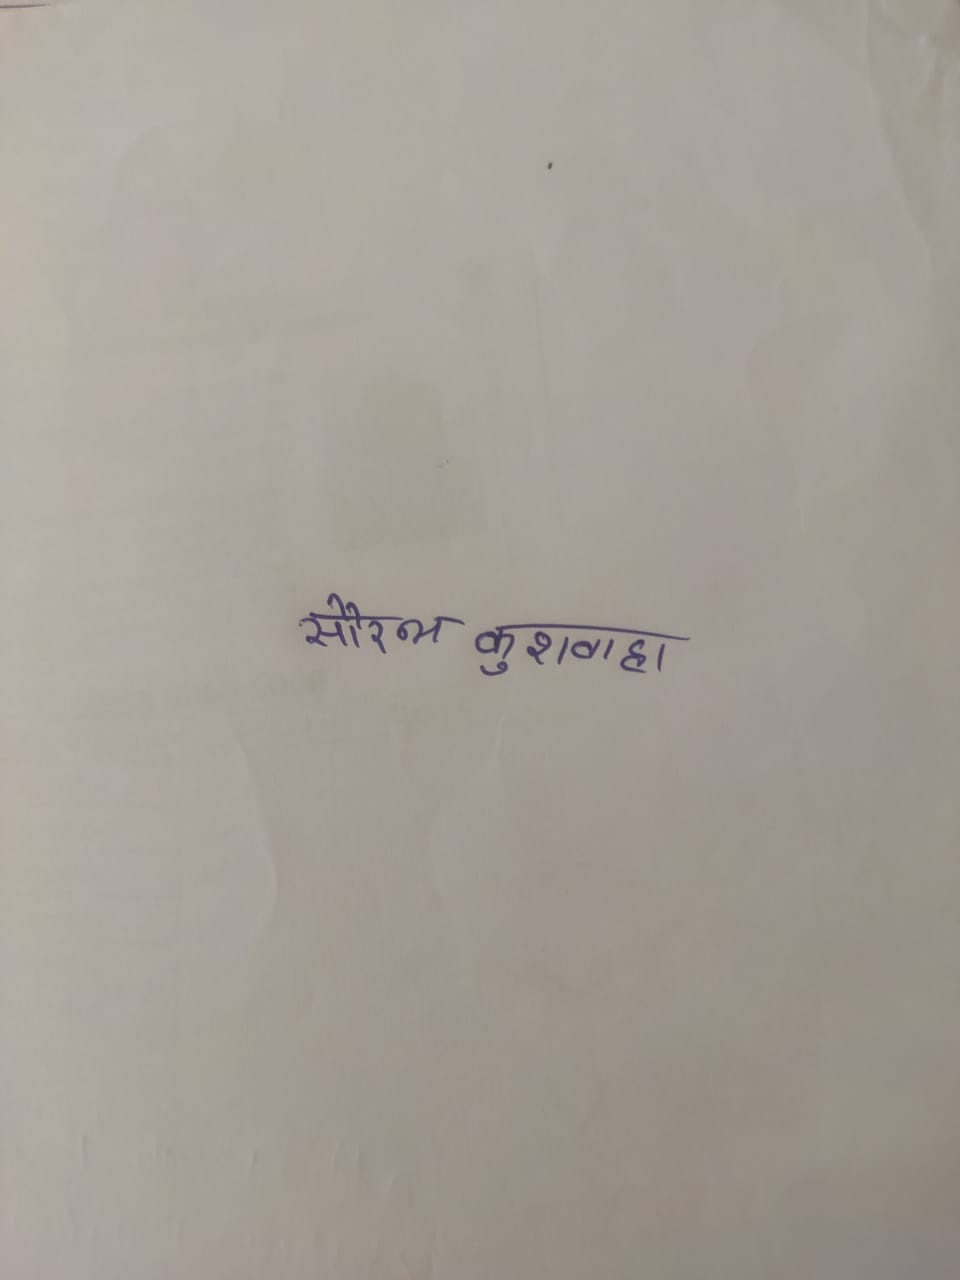 सौरभ कुशवाहा